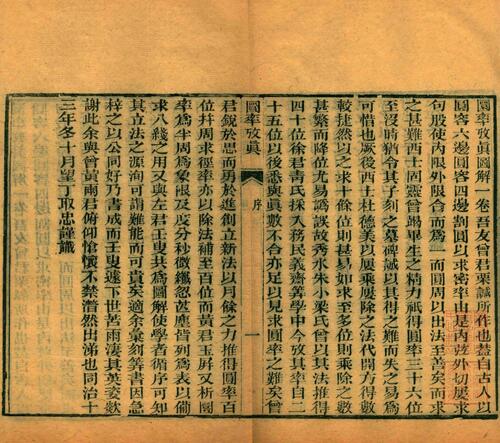 圓率攷眞圖解一卷吾友曾君栗諴所作也蓋自古人以
圓容六邊圓容四邊割圓以求密率由是內弦外切屢求
句股使內限外限合而爲一而圓周以出法至善矣而求
之甚難西士固靈曾竭畢生之精力祇得圓率三十六位
至沒時猶令其子刻之墓碑誡以其得之難而失之易爲
可惜也厥後西士杜德美以屢乘屢除之法代開方得數
較捷然以之求十餘位則甚易如求至多位則乘除之數
甚繁而降位尤易譌誤故秀水朱小梁氏曾以其法推得
四十位徐君青氏採入務民義齋筭學中今攷其率自二
十五位以後悉與眞數不合亦足以見求圓率之難矣曾
圓率攷眞 序 一
君銳於思而勇於進創立新法以月餘之力推得圓率百
位幷周求徑率亦以除法補至百位而黃君玉屏又析圓
率爲半周爲象限及度分秒微纖忽甚塵皆列爲表以備
求八綫之用又與左君壬叟共爲圖解使學者循序可知
其立法之源洵可謂難能而可貴矣適余彙刻筭書因急
梓之以公同好乃書成而壬叟遽下世苦雨淒其英姿歘
謝此余與曾黃兩君俯仰愴懷不禁潸然出涕也同治十
三年冬十月望丁取忠謹識